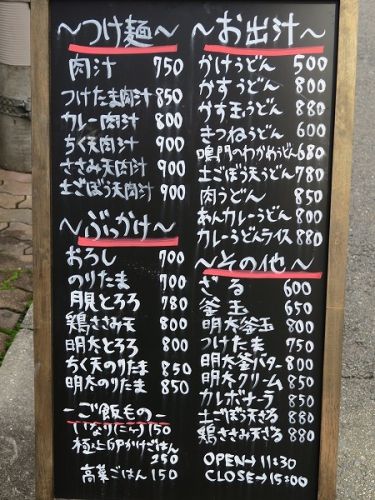 〜つけ麺〜
肉汁 750
つけたま肉汁 850
カレー肉汁 800
ちく天肉汁 900
ささみ天肉汁 900
土ごぼう天肉汁 900
〜ぶっかけ〜
おろし 700
のりたま 700
月見とろろ 780
鶏ささみ天 800
明太とろろ 800
ちく天のりたま 850
明太のりたま 850
-ご飯もの-
いなり(二ケ) 150
極上卵かけごはん
250
高菜ごはん 150
〜お出汁〜
かけうどん 500
かすうどん 800
かす玉うどん 880
きつねうどん 680
鳴門のわかめうどん 680
土ごぼう天うどん 780
肉うどん 850
あんカレーうどん 800
カレーうどんライス 880
〜その他〜
ざる 600
釜玉 650
明太釜玉 800
つけたま 750
明太釜バター 880
明太クリーム 850
カルボナーラ 850
土ごぼう天ざる 880
鶏ささみ天ざる 880
OPEN→11:30
CLOSE→15:00